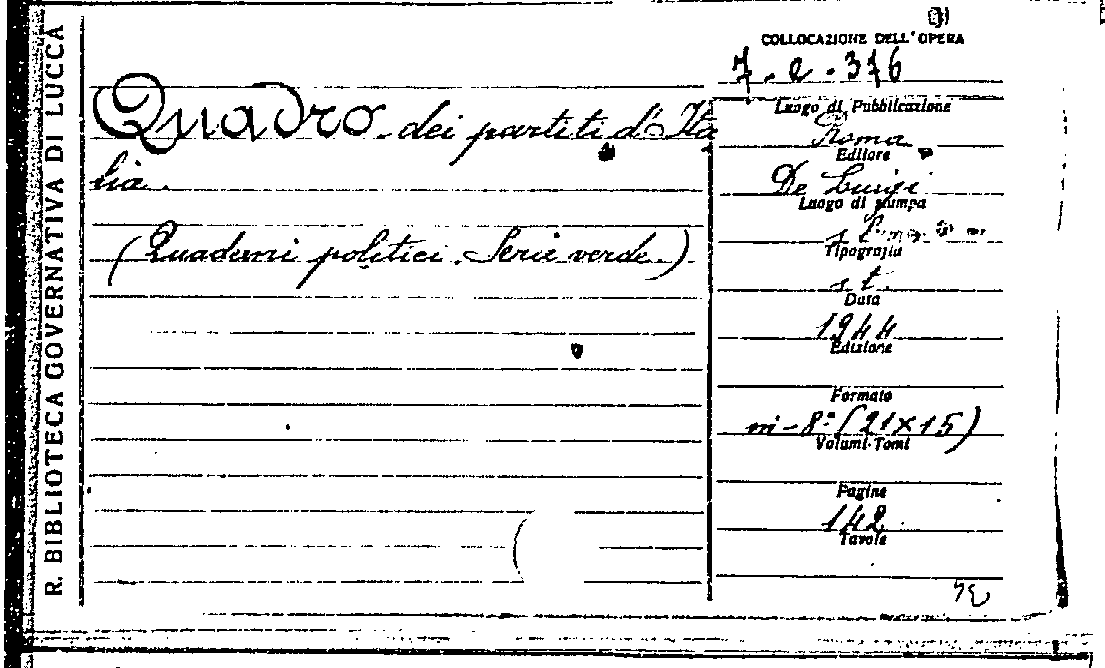 R. BIBLIOTECA GOVERNATIVA DI LUCCA
COLLOCAZIONE DELL'OPERA
7. e. 376
Quadro dei partiti d'Ita
lia.
(Quaderni politici. Serie verde.)
Luogo di Pubblicazione
Roma
Editore
De Luigi
Luogo di stampa
s. l.
Tipografia
s. t.
Data
1944
Edizione
Formato
in-8° (21×15)
Volumi-Tomi
Pagine
142
Tavole